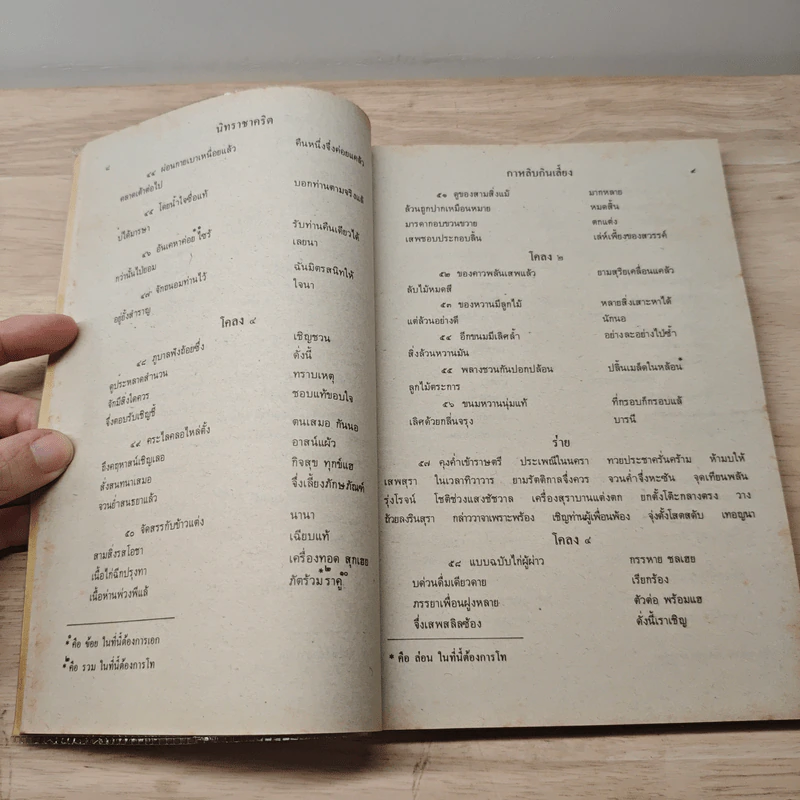 ๘
นิทราชาคริต
๔๔ ผ่อนกายเบาเหนื่อยแล้ว คืนหนึ่งจึ่งค่อยแคล้ว
คลาดเต้าต่อไป
๔๕ โดยน้ำใจซื่อแท้ บอกท่านตามจริงแล้
บ่ได้มารษา
๔๖ อันเคหาค่อย ไซร้ รับท่านคืนเดียวได้
กว่านั้นไปยอม เลยนา
๔๗ จักถนอมท่านไว้ ฉันมิตรสนิทให้
อยู่ยั้งสำราญ ใจนา
โคลง ๔
๔๘ ภูบาลฟังถ้อยซึ่ง เชิญชวน
ดูประหลาดสำนวน ดังนี้
จักมีสิ่งใดควร ทราบเหตุ
จึ่งตอบรับเชิญชี้ ชอบแท้ขอบใจ
๔๙ ตระไลคลอไหล่ตั้ง ตนเสมอ กันนอ
ถึงคฤหาสน์เชิญเลอ อาสน์แผ้ว
สั่งสนทนาเสมอ กิจสุข ทุกข์แฮ
จวนย่ำสนธยาแล้ว จึ่งเลี้ยงภักษภัณฑ์
๕๐ จัดสรรกับข้าวแต่ง นานา
สามสิ่งรสโอชา เฉียบแท้
เนื้อไก่ฉีกปรุงทา เครื่องทอด สุกเฮย
เนื้อห่านพ่วงพีแล้ ภัตร้วม๒ ราคู้
* คือ ข้อย ในที่นี้ต้องการเอก
๒ คือ รวม ในที่นี้ต้องการโท
กาหลิบกินเลี้ยง
๙
๕๑ ดูของสามสิ่งแม้ มากหลาย
ล้วนถูกปากเหมือนหมาย หมดสิ้น
มารดากอบขวนขวาย ตกแต่ง
เสพชอบประกอบลิ้น เล่ห์เพี้ยงของสวรรค์
โคลง ๒
๕๒ ของคาวพลันเสพแล้ว ยามสุริยเคลื่อนแคล้ว
ลับไม้หมดสี
๕๓ ของหวานมีลูกไม้ หลายสิ่งเสาะหาได้
แต่ล้วนอย่างดี นักนอ
๕๔ อีกขนมมีเลิศล้ำ อย่างละอย่างไป่ซ้ำ
สิ่งล้วนหวานมัน
๕๕ พลางชวนกันปอกปล้อน ปลิ้นเมล็ดในหล้อน*
ลูกไม้ตระการ
๕๖ ขนมหวานนุ่มแท้ ที่กรอบก็กรอบแล้
เลิศด้วยกลิ่นจรุง บารนี
ร่าย
๕๗ คุงค่ำเข้าราษตรี ประเพณีในนครา ทวยประชาครั่นคร้าม ห้ามบให้
เสพสุรา ในเวลาทิวาวาร ยามรัตติกาลจึ่งควร จวนค่ำจึ่งหะซัน จุดเทียนพลัน
รุ่งโรจน์ โชติช่วงแสงชัชวาล เครื่องสุราบานแต่งตก ยกตั้งโต๊ะกลางตรง วาง
ถ้วยลงรินสุรา กล่าววาจาเพราะพร้อง เชิญท่านผู้เพื่อนพ้อง จุ่งตั้งโสตสดับ เทอญนา
โคลง ๔
๕๘ แบบฉบับไก่ผู้ผ่าว กรรหาย ชลเฮย
บด่วนดื่มเดียวดาย เรียกร้อง
ภรรยาเพื่อนฝูงหลาย ตัวต่อ พร้อมแฮ
จึ่งเสพสลิลซ้อง ดั่งนี้เราเชิญ
* คือ ล่อน ในที่นี้ต้องการโท